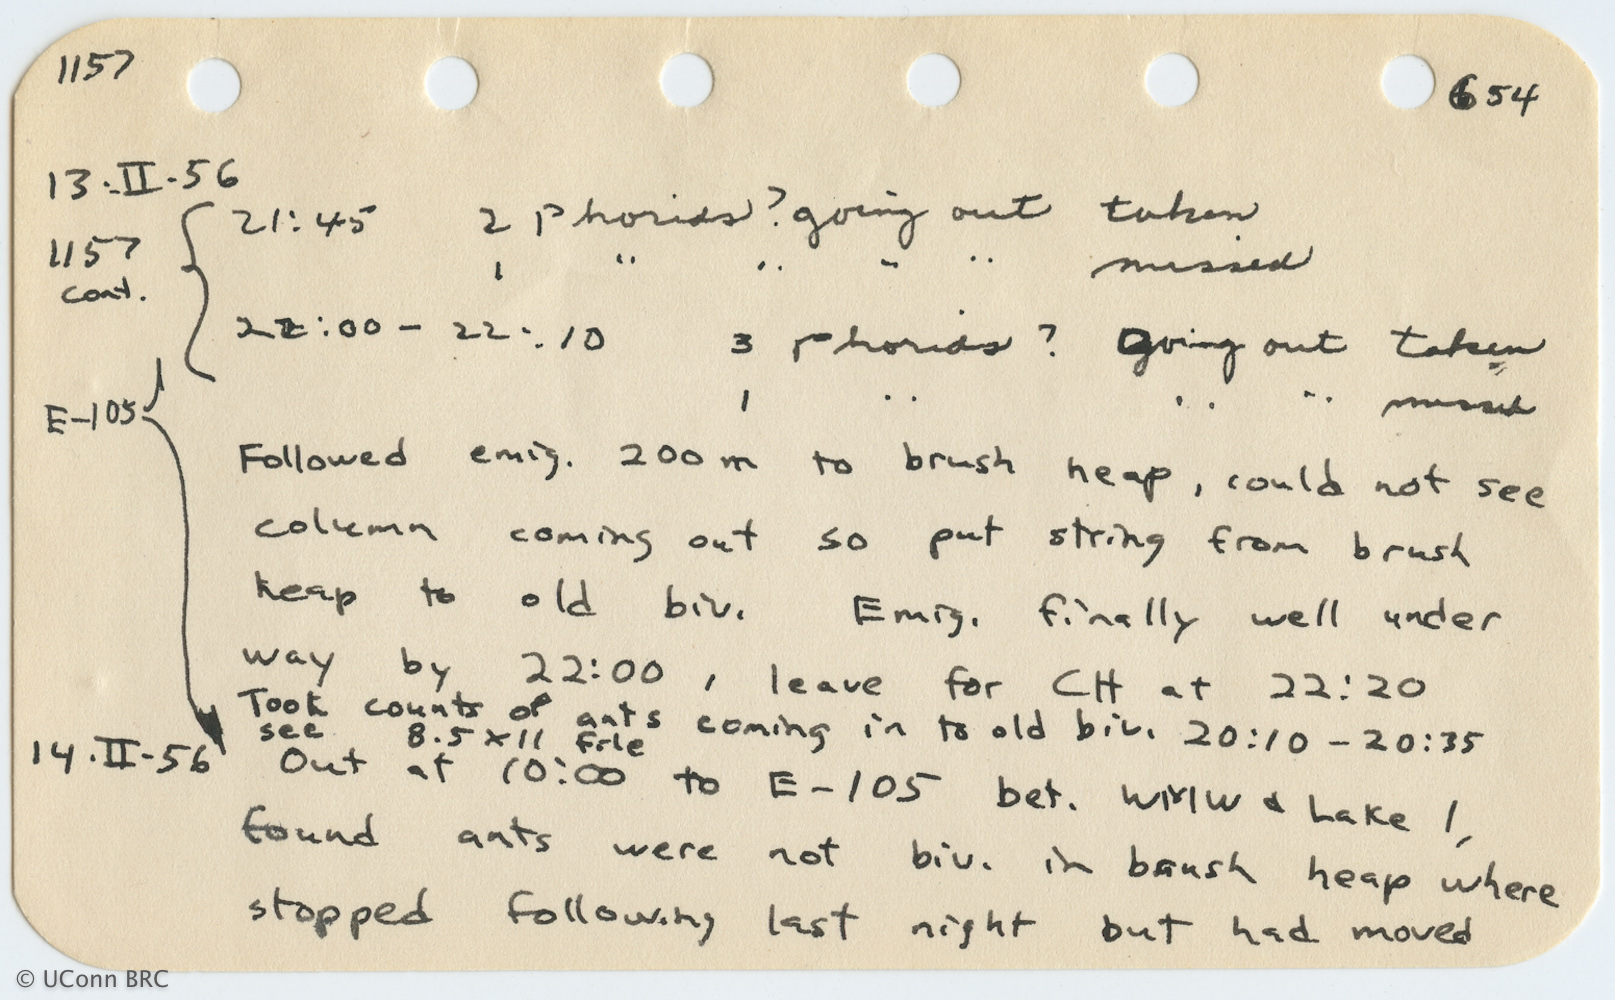 1157
654
13·II·56
1157 cont.
21:45 2 Phorids? going out taken
1 " " " " missed
22:00 - 22:10 3 Phorids? Going out taken
1 " " " missed
E-105
Followed emig. 200 m to brush heap, could not see
column coming out so put string from brush
heap to old biv. Emig. finally well under
way by 22:00, leave for CH at 22:20
Took counts of ants coming in to old biv. 20:10 - 20:35
see 8.5 x 11 file
14·II·56 Out at 10:00 to E-105 bet. & Lake 1,
found ants were not biv. in brush heap where
stopped following last night but had moved
© UConn BRC